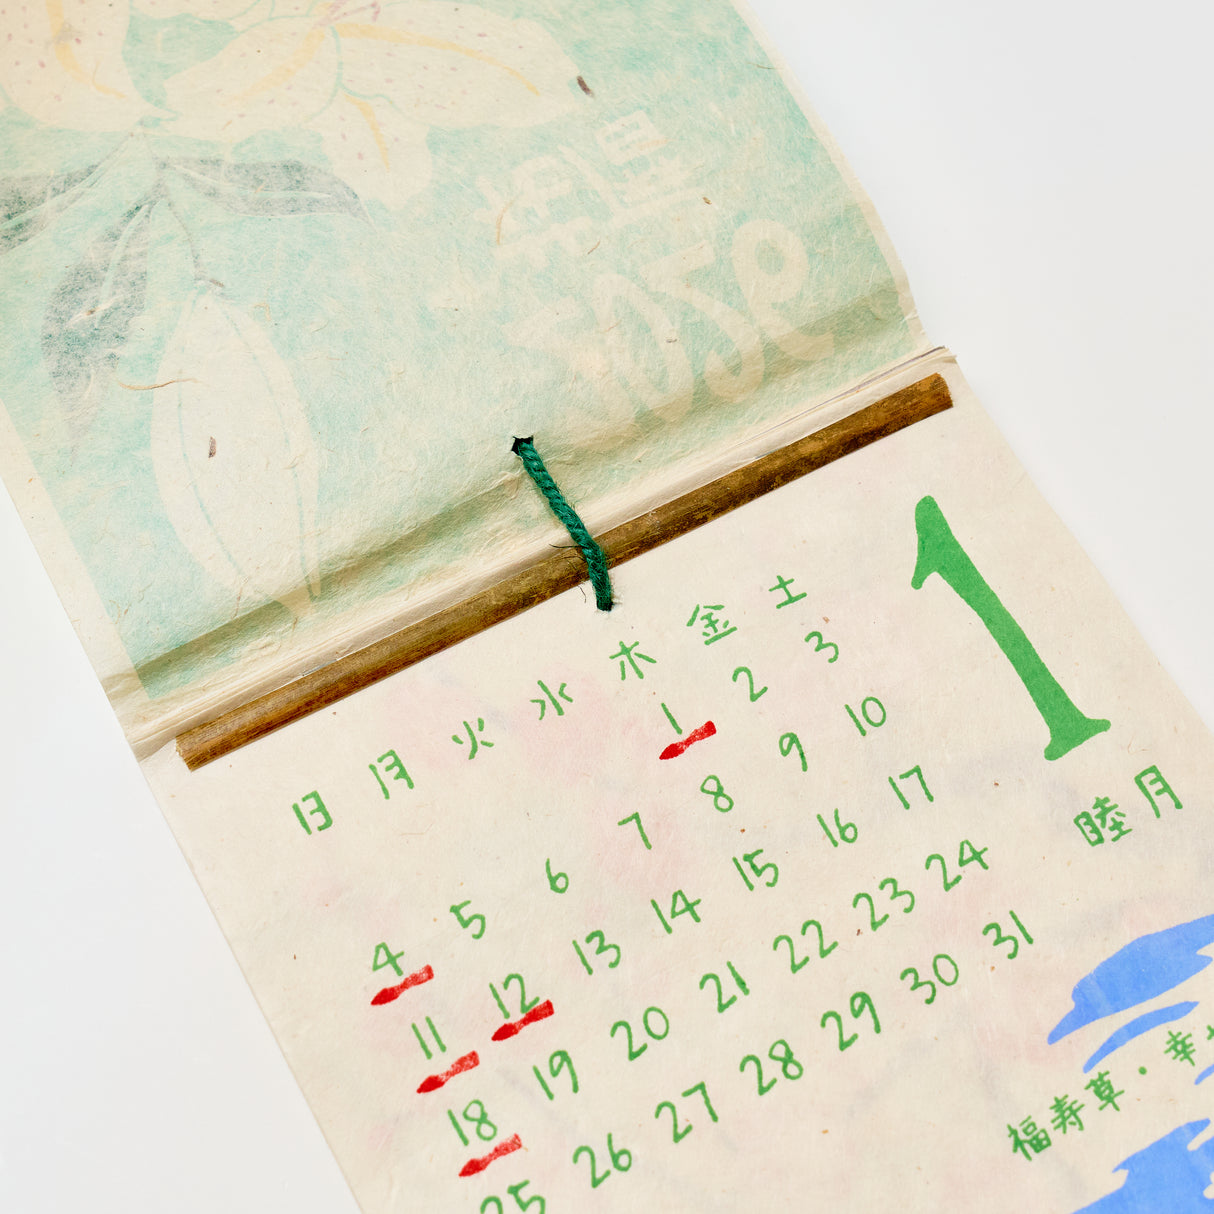 2026
日 月 火 水 木 金 土
1 2 3
4 5 6 7 8 9 10
11 12 13 14 15 16 17
18 19 20 21 22 23 24
25 26 27 28 29 30 31
1
睦月
福寿草・幸